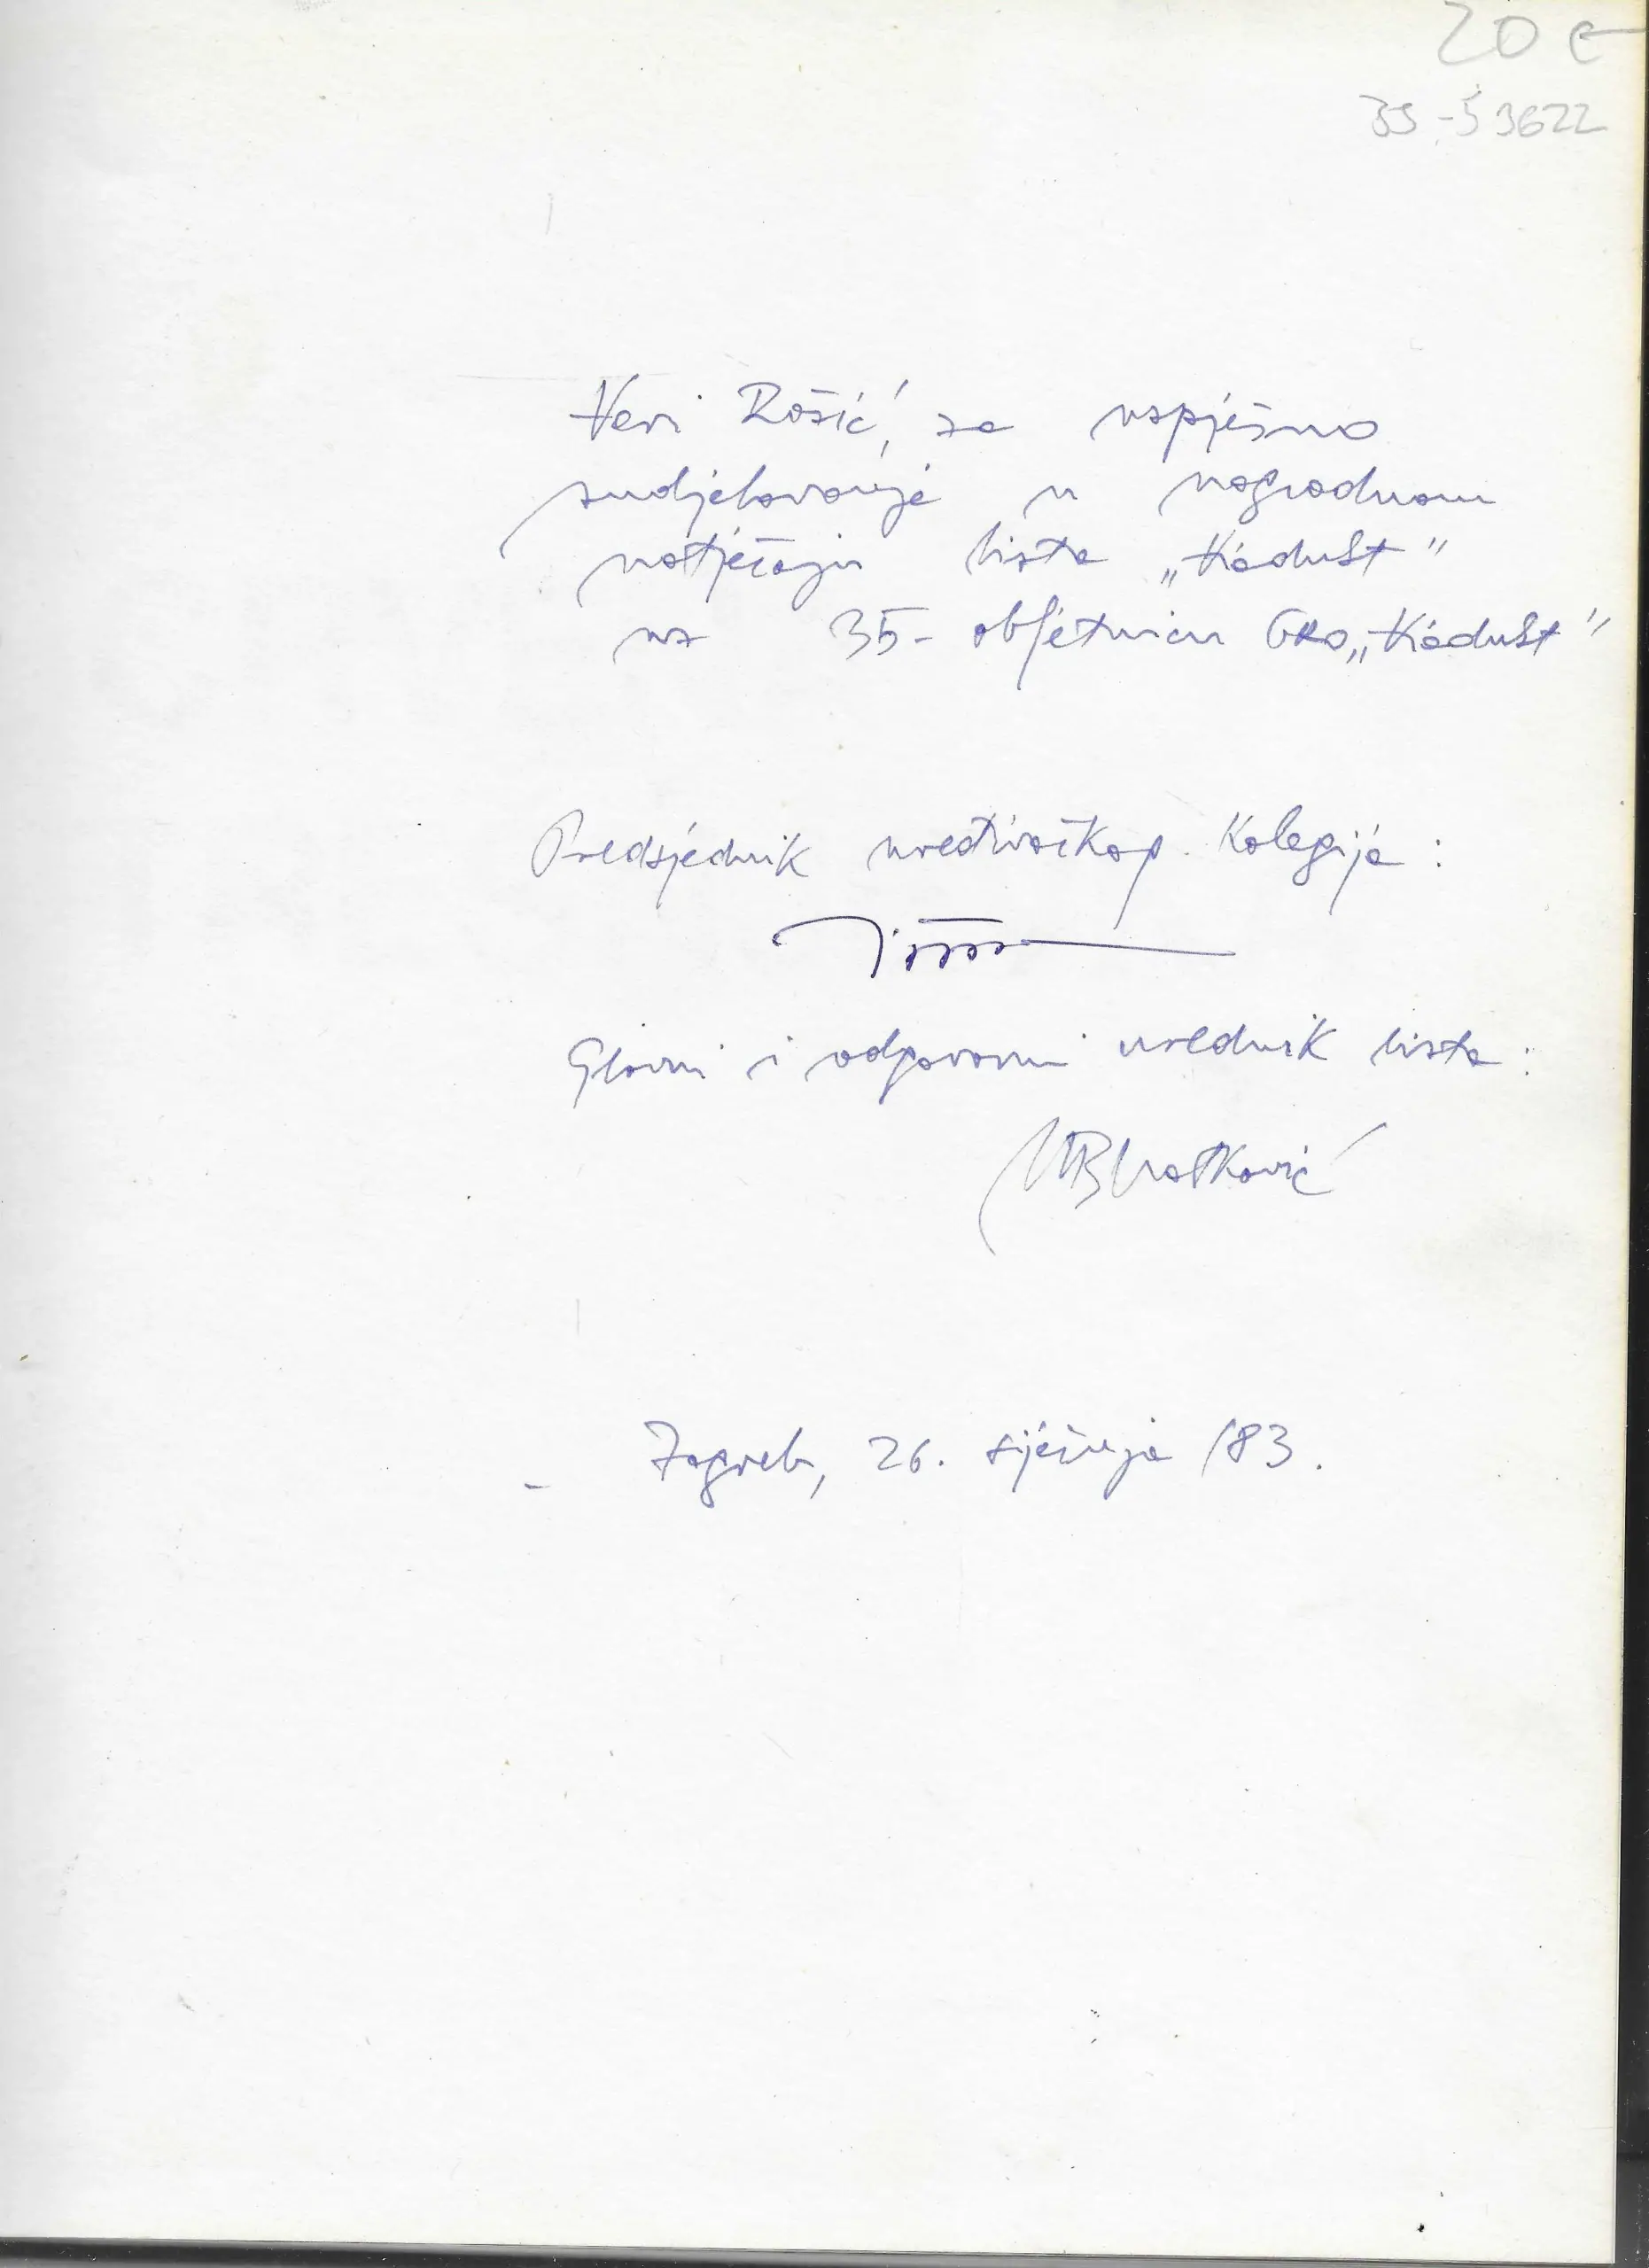 20 €
35-53622
Veri Rošić, za uspješno
sudjelovanje u nagradnom
natječaju lista „Kadušt"
na 35- obljetnicu GRO „Kadušt"
Predsjednik uređivačkog Kolegija:
Glavni i odgovorni urednik lista:
Zagreb, 26. siječnja /83.